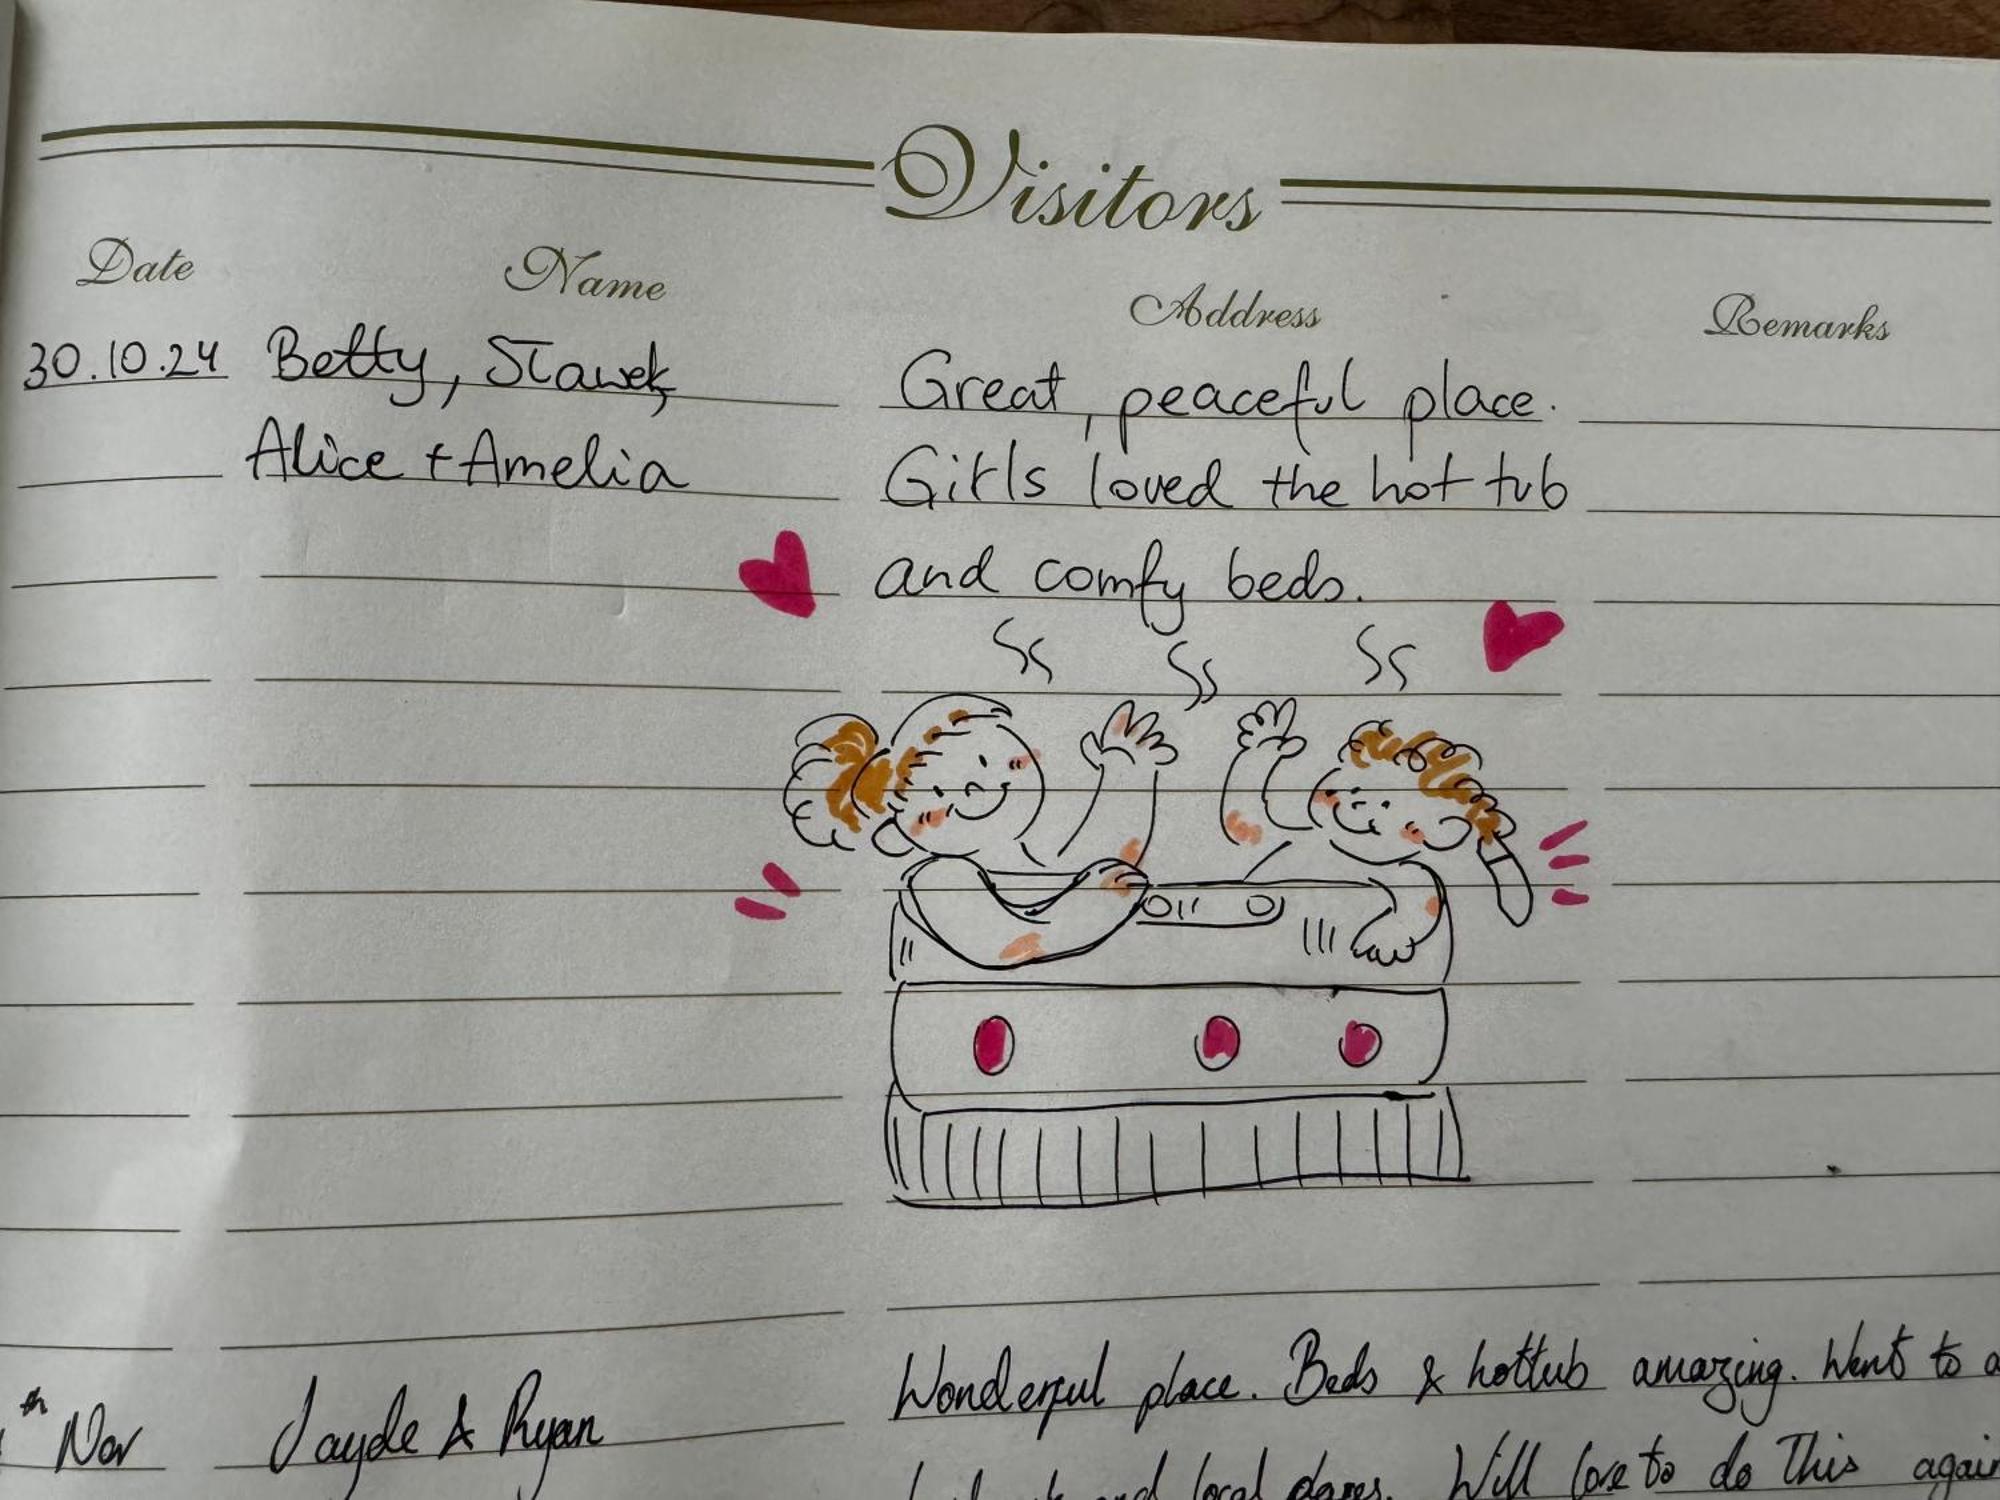 Visitors
Date Name Address Remarks
30.10.24 Betty, Sławek, Great, peaceful place.
Alice + Amelia Girls loved the hot tub
and comfy beds.
th Nov Jayde & Ryan Wonderful place. Beds & hottub amazing. Went to
and local Will love to do This again